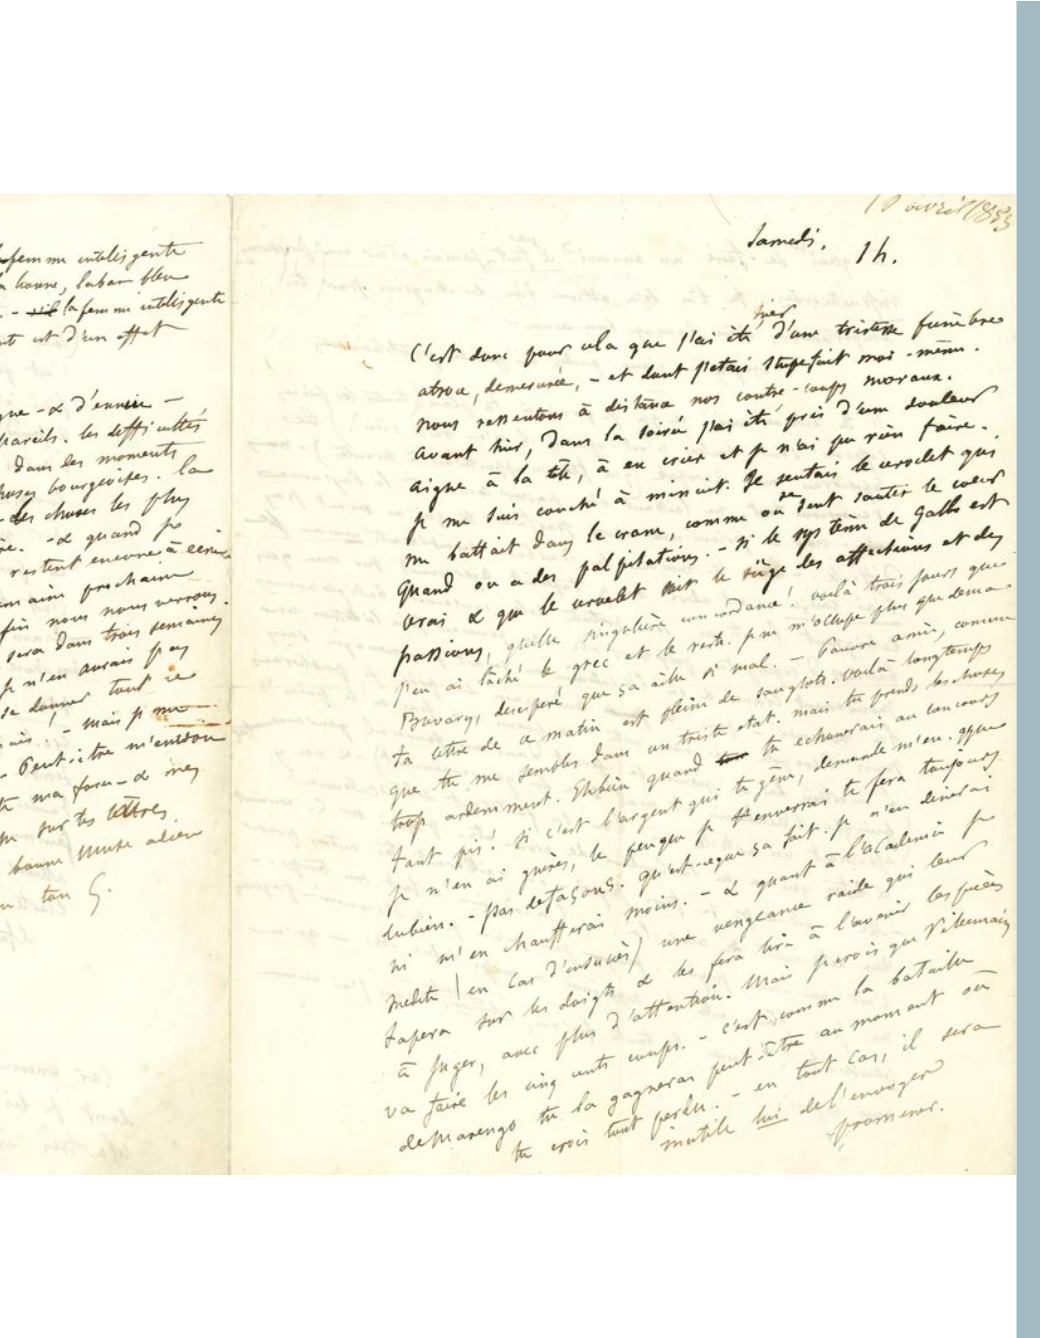 la femme intelligente
bonne, labas bleu
la femme intelligente
est d'un effet
que - & d'ennui -
pareils. les difficultés
dans les moments
choses bourgeoises. la
des choses les plus
- & quand je
restent encore à écrire
semaine prochaine
fin nous nous verrons.
sera dans trois semaines
je n'en aurais pas
se donner tout ce
mais! - mais je me
- Peut-être m'entson
ma force - & mes
sur tes lettres
bonne Muse adieu
ton G.
10 avril 1853
Samedi. 1 h.
C'est donc pour cela que j'ai été hier d'une tristesse funèbre
atroce, demesurée, - et dont j'etais stupefait moi-même.
nous ressentons à distance nos contre-coups moraux.
avant hier, dans la soirée j'ai été pris d'une douleur
aigue à la tête, à en crier et je n'ai pu rien faire.
je me suis couché à minuit. Je sentais le cervelet qui
me battait dans le crane, comme on se sent sauter le coeur
quand on a des palpitations. - si le système de Gall est
vrai & que le cervelet soit le siège des affections et des
passions, quelle singulière concordance! voilà trois jours que
j'en ai lâché le grec et le reste. je ne m'occupe plus que de ma
Bovary, desespéré que ça aille si mal. - Pauvre amie, comme
ta lettre de ce matin est pleine de sanglots. voilà longtemps
que tu me sembles dans un triste etat. mais tu prends les choses
trop ardemment. Ehbien quand tu echouerais au concours
tant pis! si c'est l'argent qui te gêne, demande m'en. q que
je n'en ai guères, le peu que je t'enverrai te fera toujours
dubien. - pas de façons. qu'est-ceque ça fait. je n'en dînerai
ni m'en chaufferai moins. - & quant à l'academie je
medite (en cas d'insuccès) une vengeance raide qui leur
tapera sur les doigts & les fera lire à l'avenir les pièces
à juger, avec plus d'attention. Mais je crois que Villemain
va faire les cinq cents coups. - c'est comme la bataille
de Marengo tu la gagneras peut-être au moment où
tu crois tout perdu. - en tout cas, il sera
inutile lui de l'envoyer
promener.